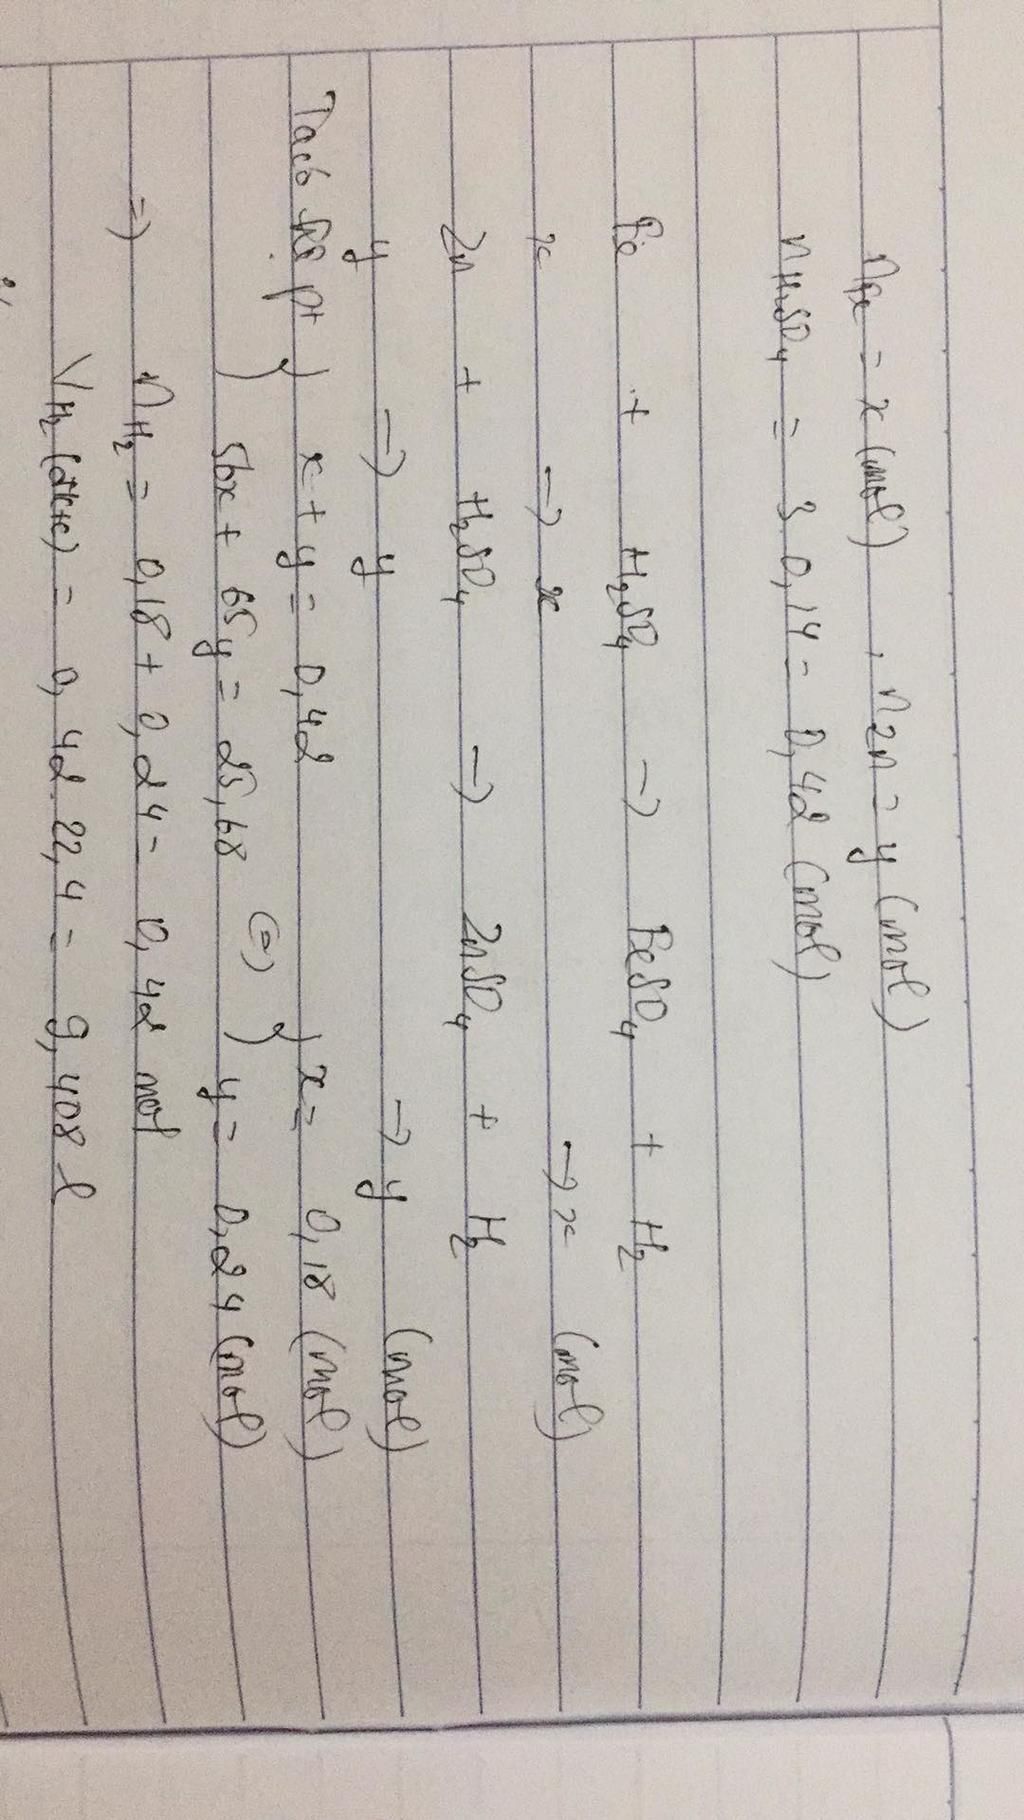 nFe = x (mol) , nZn = y (mol)
nH₂SO₄ = 3 0,14 = 0,42 (mol)
Fe + H₂SO₄ → FeSO₄ + H₂
x → x → x (mol)
Zn + H₂SO₄ → ZnSO₄ + H₂
y → y → y (mol)
Ta có pt { x + y = 0,42 { x = 0,18 (mol)
{ 56x + 65y = 25,68 (=) { y = 0,24 (mol)
=) nH₂ = 0,18 + 0,24 = 0,42 mol
VH₂ (đktc) = 0,42.22,4 = 9,408 l